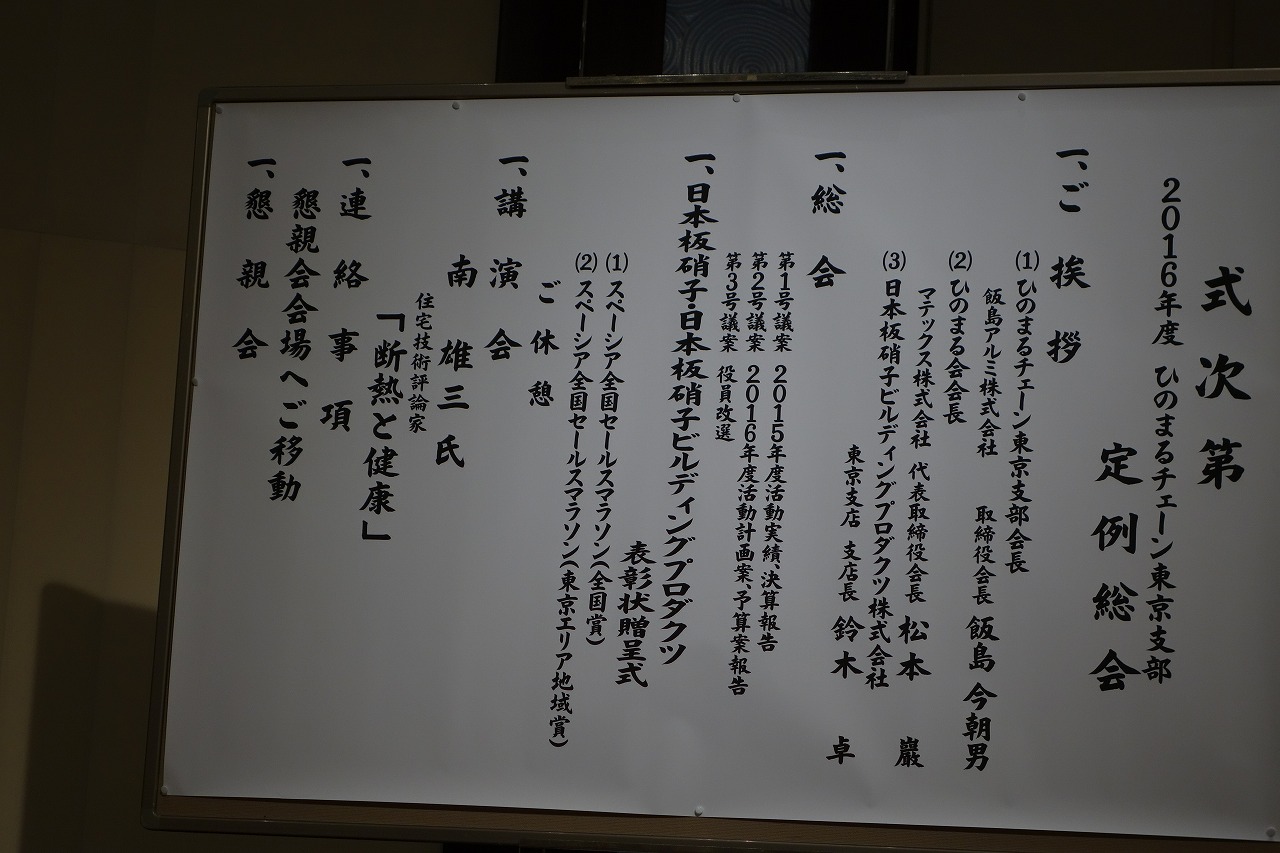 式次第
2016年度 ひのまるチェーン東京支部
定例総会
一、ご挨拶
(1)ひのまるチェーン東京支部会長
飯島アルミ株式会社 取締役会長 飯島 今朝男
(2)ひのまる会会長
マテックス株式会社 代表取締役会長 松本 巖
(3)日本板硝子ビルディングプロダクツ株式会社
東京支店 支店長 鈴木 卓
一、総会
第1号議案 2015年度活動実績、決算報告
第2号議案 2016年度活動計画案、予算案報告
第3号議案 役員改選
一、日本板硝子・日本板硝子ビルディングプロダクツ
表彰状贈呈式
(1)スペーシア全国セールスマラソン(全国賞)
(2)スペーシア全国セールスマラソン(東京エリア地域賞)
ご休憩
一、講演会
南 雄三氏
住宅技術評論家
「断熱と健康」
一、連絡事項
懇親会会場へご移動
一、懇親会